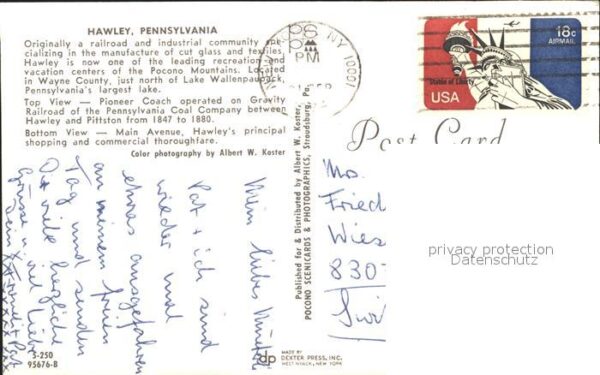 HAWLEY, PENNSYLVANIA
Originally a railroad and industrial community spe-
cializing in the manufacture of cut glass and textiles,
Hawley is now one of the leading recreation and
vacation centers of the Pocono Mountains. Located
in Wayne County, just north of Lake Wallenpaupack,
Pennsylvania's largest lake.
Top View — Pioneer Coach operated on Gravity
Railroad of the Pennsylvania Coal Company between
Hawley and Pittston from 1847 to 1880.
Bottom View — Main Avenue, Hawley's principal
shopping and commercial thoroughfare.
Color photography by Albert W. Koster
Mein liebes
Pat + ich sind
wieder mal
etwas ausgefahren
an meinem freien
Tag und senden
Dir viele herzliche
Grüsse u. viel Liebe
Dein
S-250
95676-B
Published for & Distributed by Albert W. Koster,
POCONO SCENICARDS & PHOTOGRAPHICS, Stroudsburg, Pa.
dp
MADE BY
DEXTER PRESS, INC.
WEST NYACK, NEW YORK
NY 10001
PM
18c
AIRMAIL
Statue of Liberty
USA
Post Card
Ms.
Fried
Wies
830
privacy protection
Datenschutz